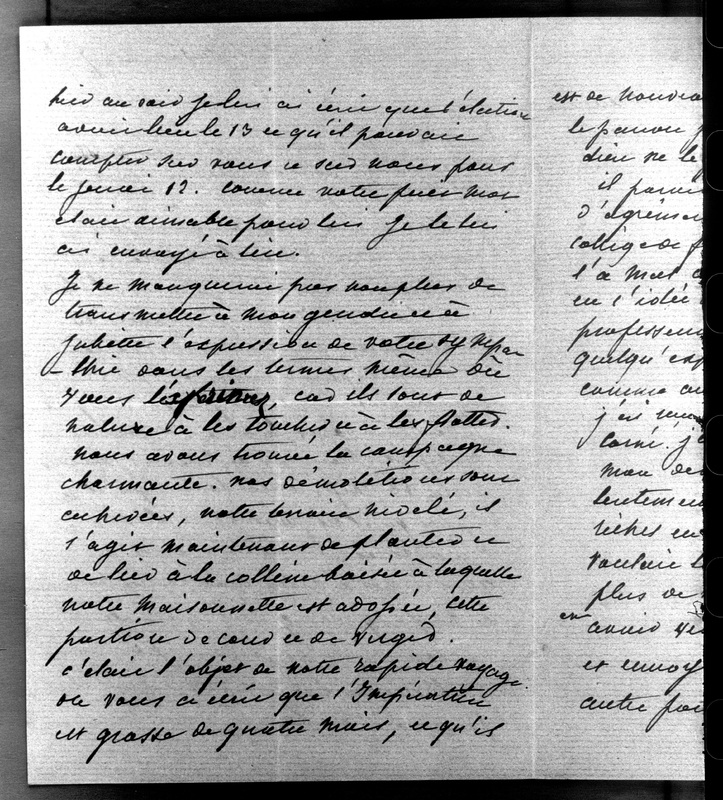 hier au soir je lui ai écrit que l'élection
avait lieu le 13 et qu'il pouvait
compter sur vous et sur nous pour
le jeudi 12. Comme votre petit mot
était aimable pour lui je le lui
ai envoyé à lire.
Je ne manquerai pas non plus de
transmettre à mon gendre et à
Juliette l'expression de votre sympa
- thie dans les termes même où
vous l'exprimez, car ils sont de
nature à les toucher et à les flatter.
nous avons trouvé la campagne
charmante. nos démolitions sont
enlevées, notre terrain nivelé, il
s'agit maintenant de planter et
de lier à la colline boisée à laquelle
notre maisonnette est adossée, cette
portion de cour et de verger.
c'était l'objet de notre rapide voyage.
on vous a écrit que l'Impératrice
est grosse de quatre mois, et qu'il
est de nouveau
le
dieu ne le
il
d'agrément
collège de
l'a
en l'idée
quelqu'
comme
j'ai
mon
lentement
riches en
vouloir
plus de
avoir
et
autre